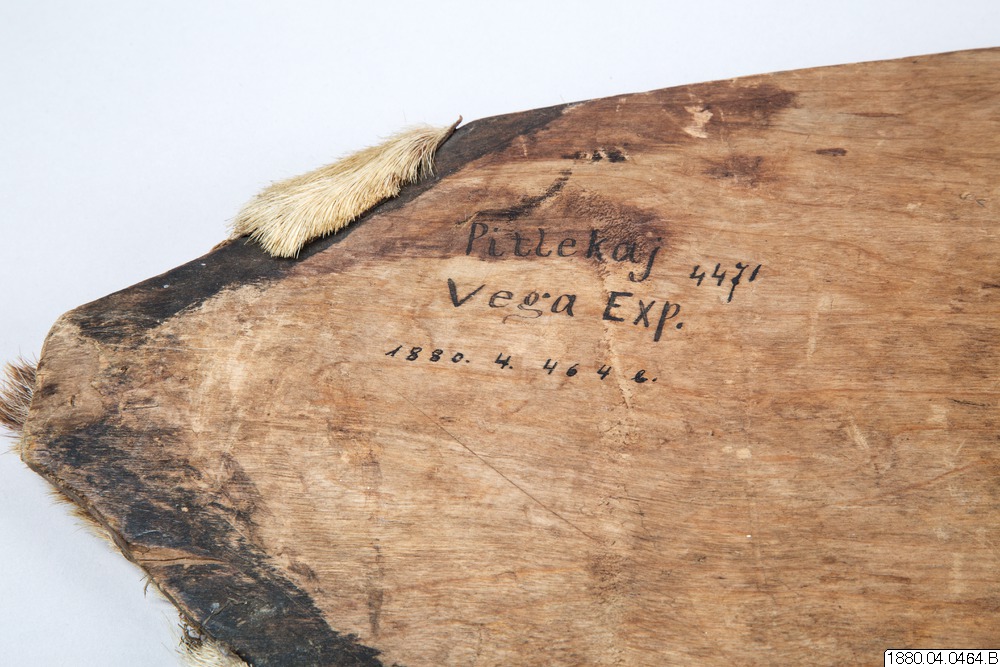 Pitlekaj
4471
Vega Exp.
1880. 4. 464 b.
1880.04.0464.B